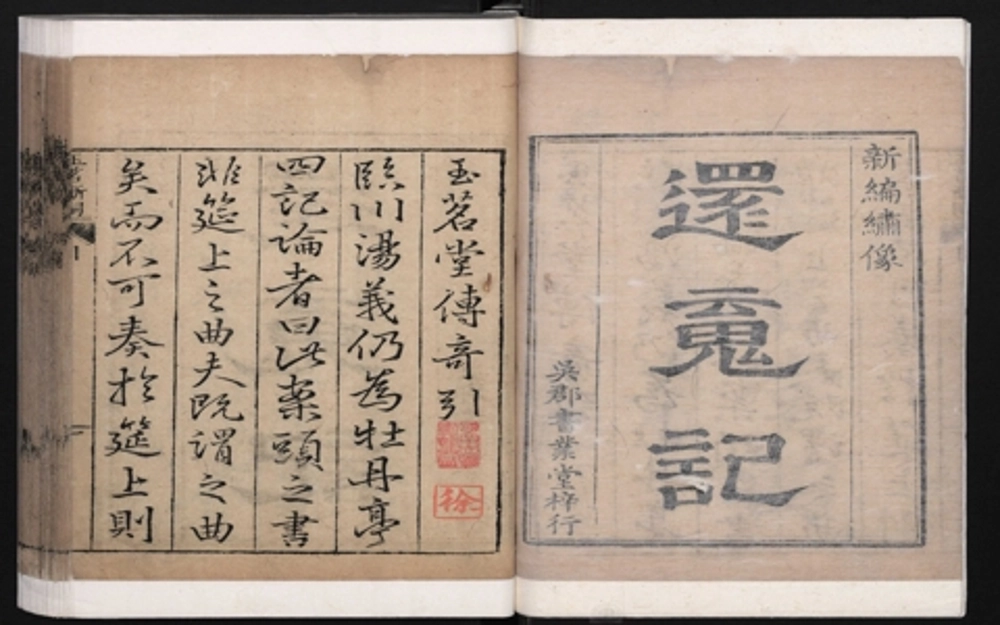 新編繡像
還魂記
吳郡書業堂梓行
玉茗堂傳奇引
臨川湯義仍為牡丹亭
四記論者曰此案頭之書
非筵上之曲夫既謂之曲
矣而不可奏於筵上則